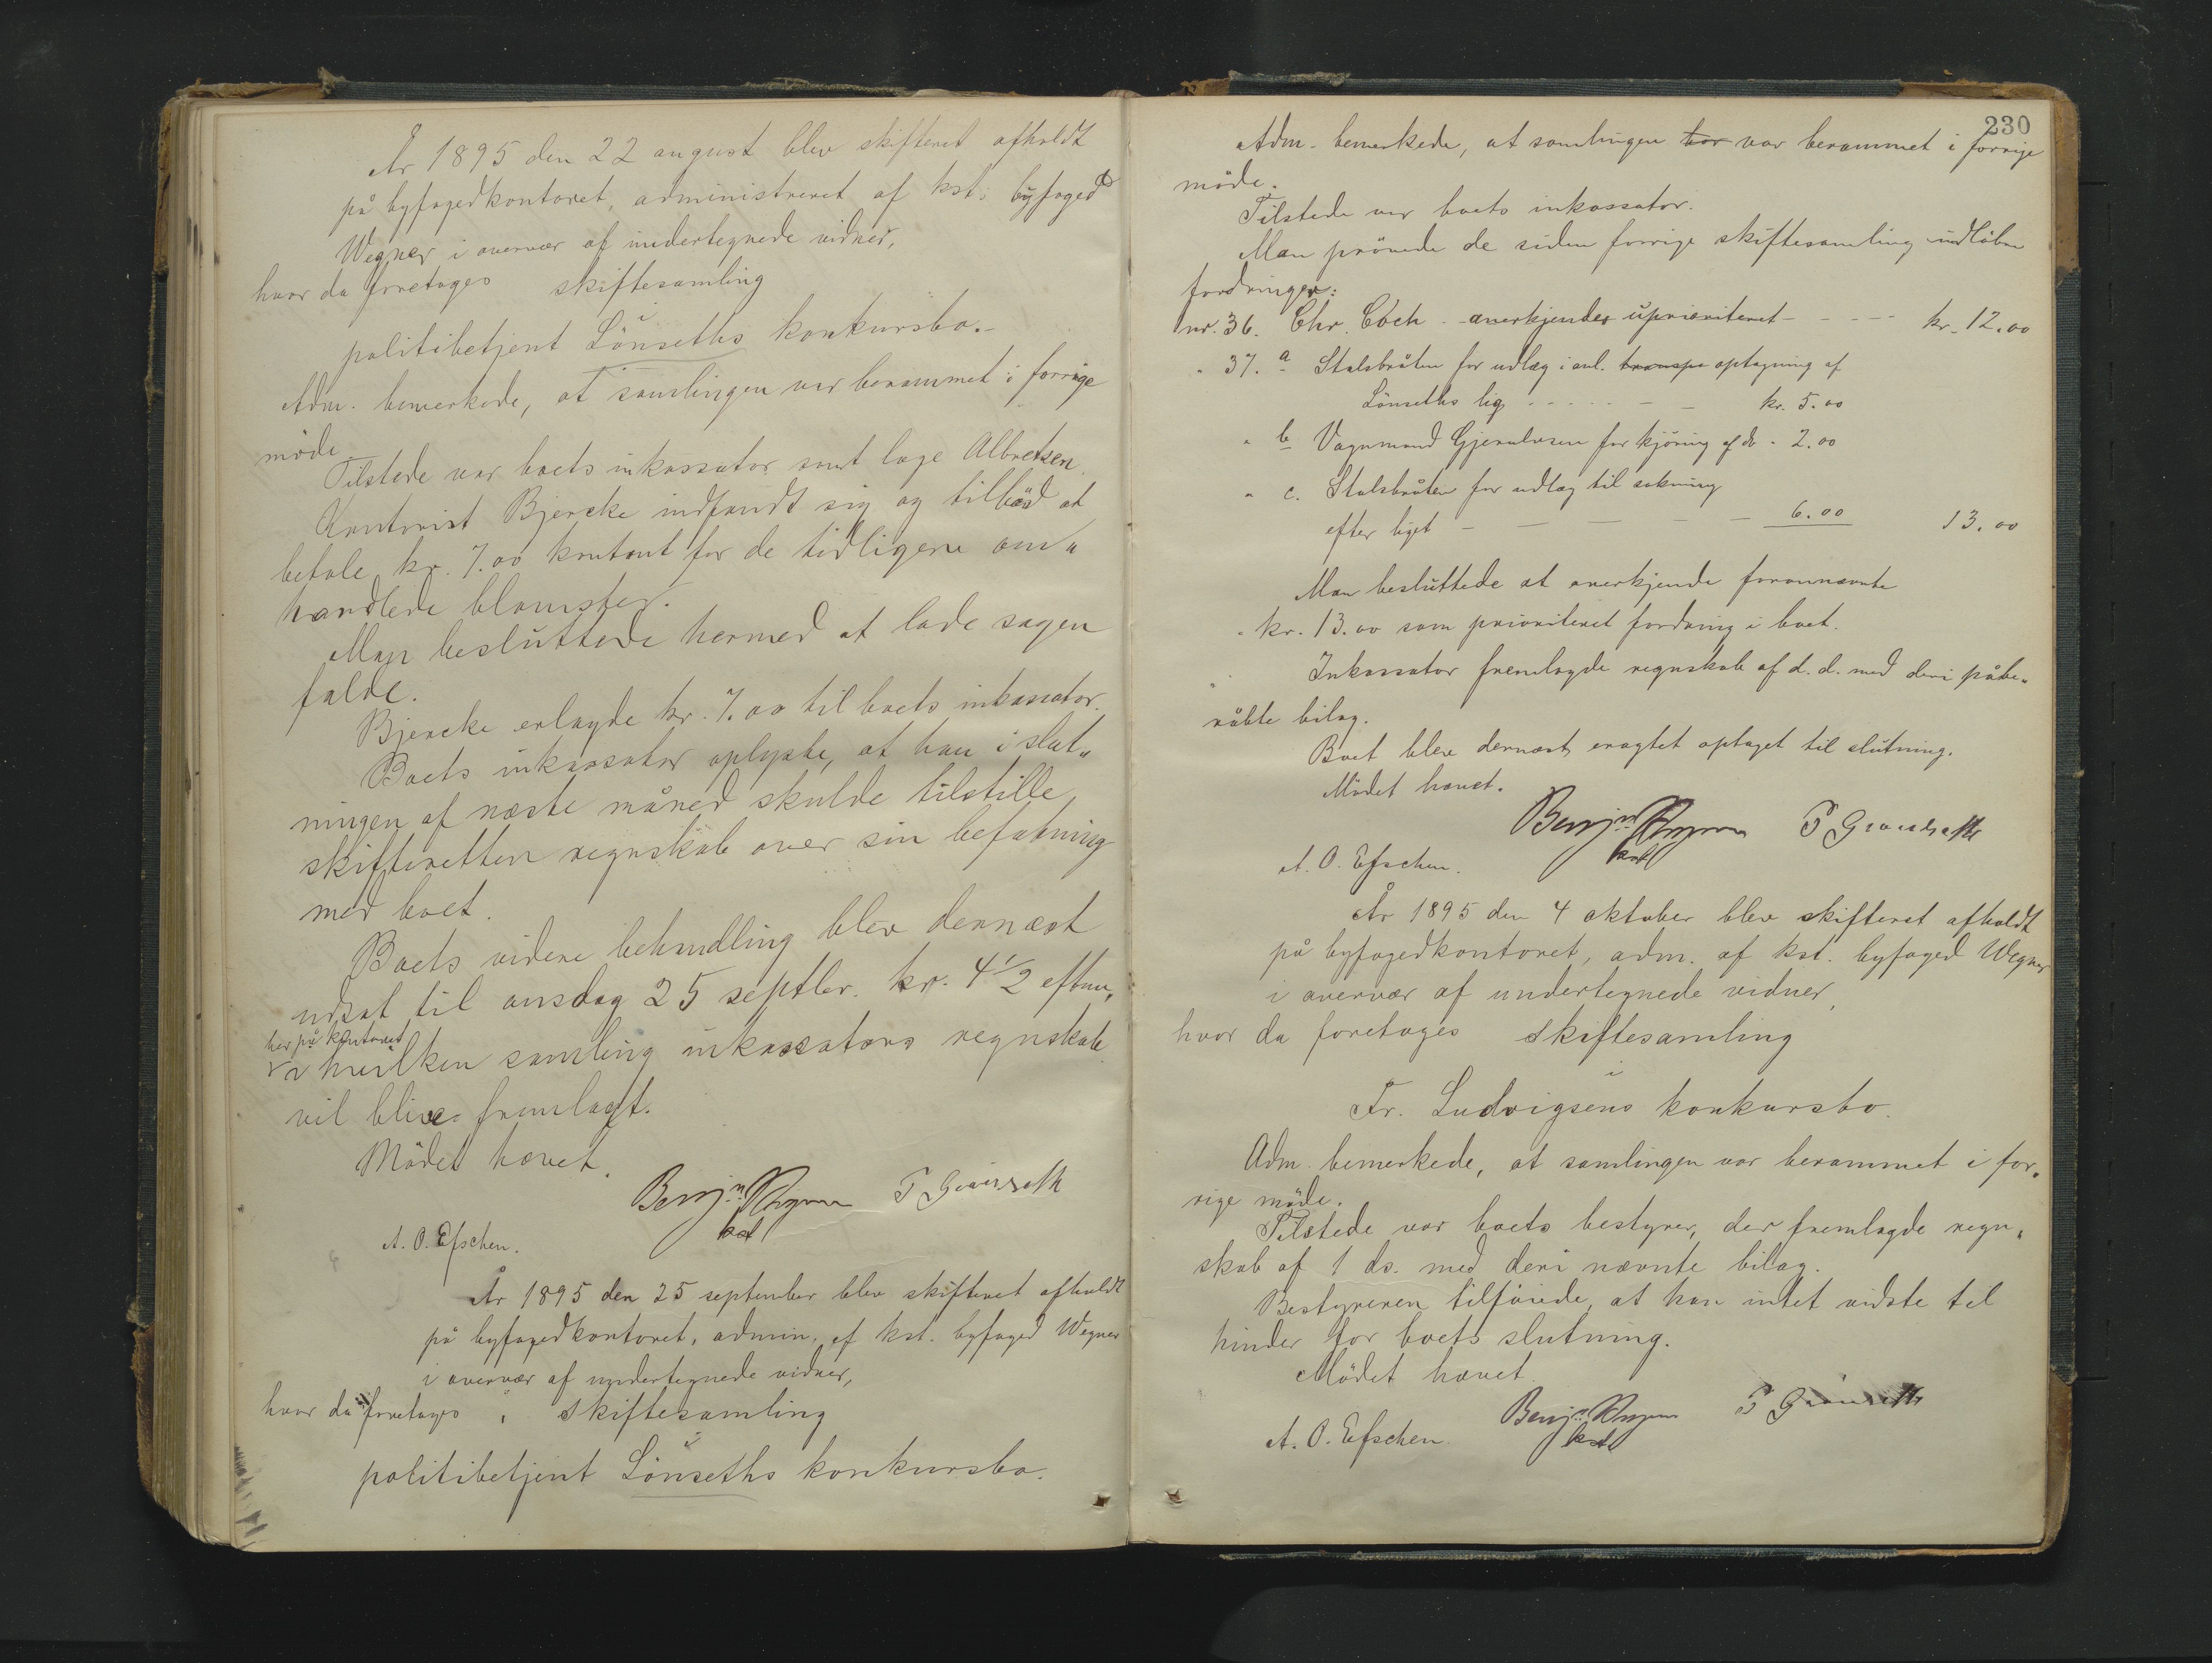 År 1895 den 22 august blev skifteret afholdt
på byfogedkontoret, administreret af kst. byfoged
Wegner i overvær af undertegnede vidner,
hvor da foretoges skiftesamling
i
politibetjent Lönseths konkursbo.
Adm. bemerkede, at samlingen var berammet i forrige
möde
Tilstede var boets inkassator samt Albretsen.
Kontorist Bjercke indfandt sig og tilböd at
betale kr. 7.00 kontant for de tidligere om„
handlede blomster.
Man besluttede hermed at lade sagen
falde.
Bjercke erlagde kr. 7.00 til boets inkassator.
Boets inkassator oplyste, at han i slut„
ningen af næste måned skulde tilstille
skifteretten regnskab over sin befatning
med boet.
Boets videre behandling blev dernæst
udsat til onsdag 25 septbr. kr. 4 1/2 eftm.
her på kontoret
i hvilken samling inkassators regnskab
vil blive fremlagt.
Mödet hævet.
Benj.n Wegner
kst
A. O. Efschen.
År 1895 den 25 september blev skifteret afholdt
på byfogedkontoret, admin. af kst. byfoged Wegner
i overvær af undertegnede vidner,
hvor da foretoges skiftesamling
i
politibetjent Lönseths konkursbo.
230
Adm. bemerkede, at samlingen var berammet i forrige
möde.
Tilstede var boets inkassator.
Man prövede de siden forrige skiftesamling indlöbne
fordringer:
nr. 36. Chr. Coch - anerkjendes uprioriteret - - - - kr. 12.00
„ 37. a Stalsbråten for udlæg i anl. optagning af
Lönseths lig - - - - - kr. 5.00
„ b Vognmand Gjerulvsen for kjöring af do „ 2.00
„ c. Stalsbråten for udlæg til sökning
efter liget - - - - - 6.00 13.00
Man besluttede at anerkjende forannævnte
kr. 13.00 som prioriteret fordring i boet.
Inkassator fremlagde regnskab af d. d. med deri påbe„
råbte bilag.
Boet blev dernæst eragtet optaget til slutning.
Mödet hævet.
Benj.n Wegner
kst
A. O. Efschen.
År 1895 den 4 oktober blev skifteret afholdt
på byfogedkontoret, adm. af kst. byfoged Wegner
i overvær af undertegnede vidner,
hvor da foretoges skiftesamling
i
Fr. Ludvigsens konkursbo.
Adm. bemerkede, at samlingen var berammet i for„
rige möde.
Tilstede var boets bestyrer, der fremlagde regn„
skab af 1 ds. med deri nævnte bilag.
Bestyreren tilföiede, at han intet vidste til
hinder for boets slutning.
Mödet hævet.
Benj.n Wegner
kst
A. O. Efschen.